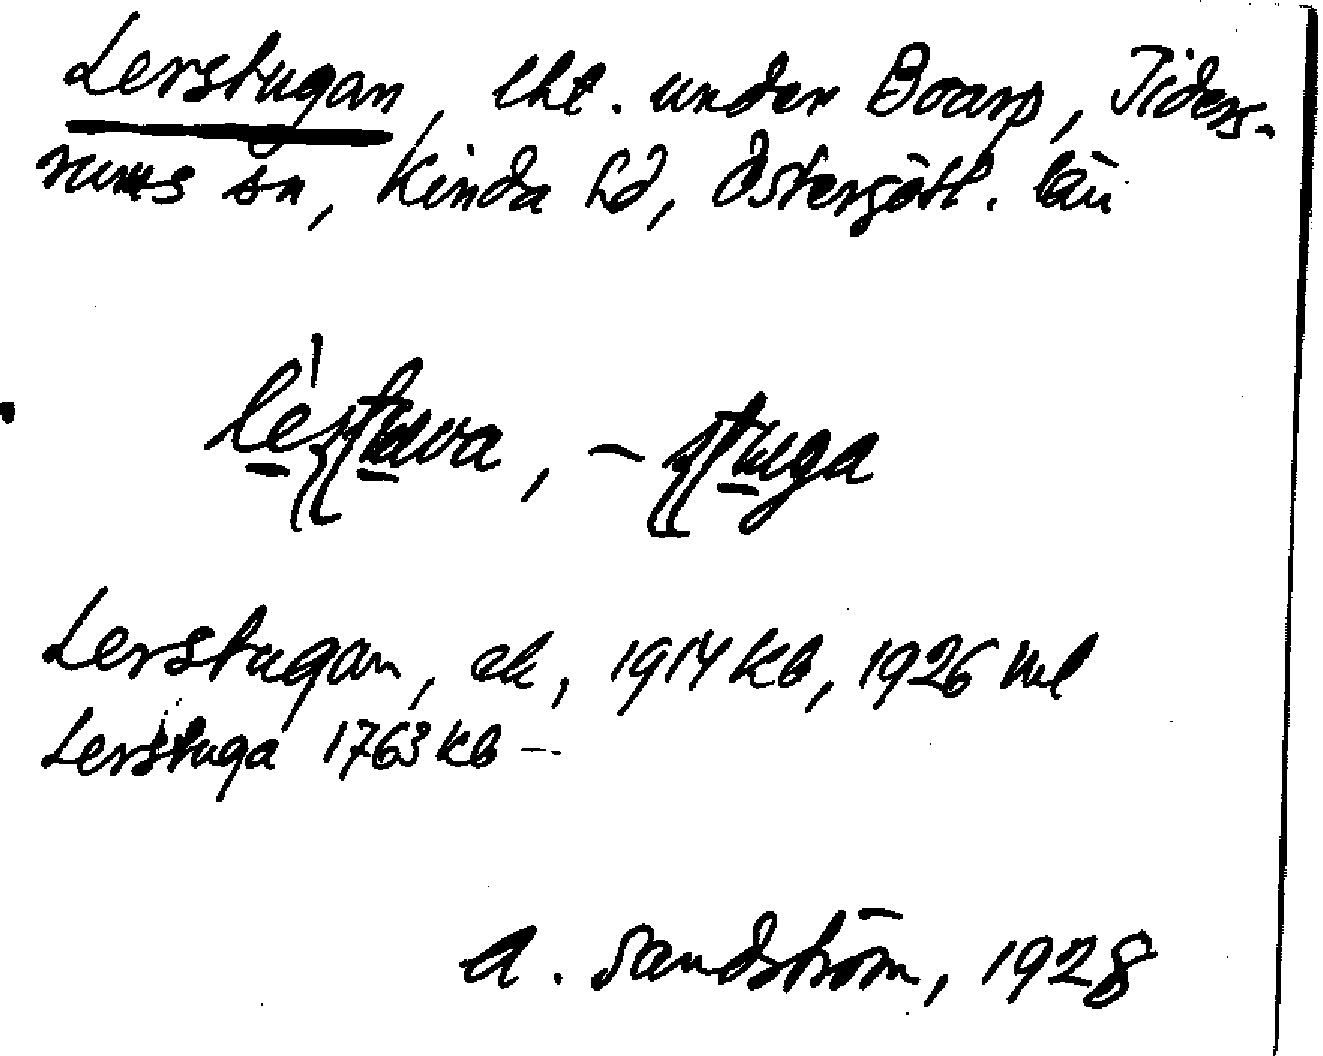 Lerstugan, lht. under Boarp, Tiders-
rums sn, Kinda hd, Östergötl. län
Lerstugan, ek, 1914 kb, 1926 ml
Lerstuga 1763 kb —
A. Sandström, 1928